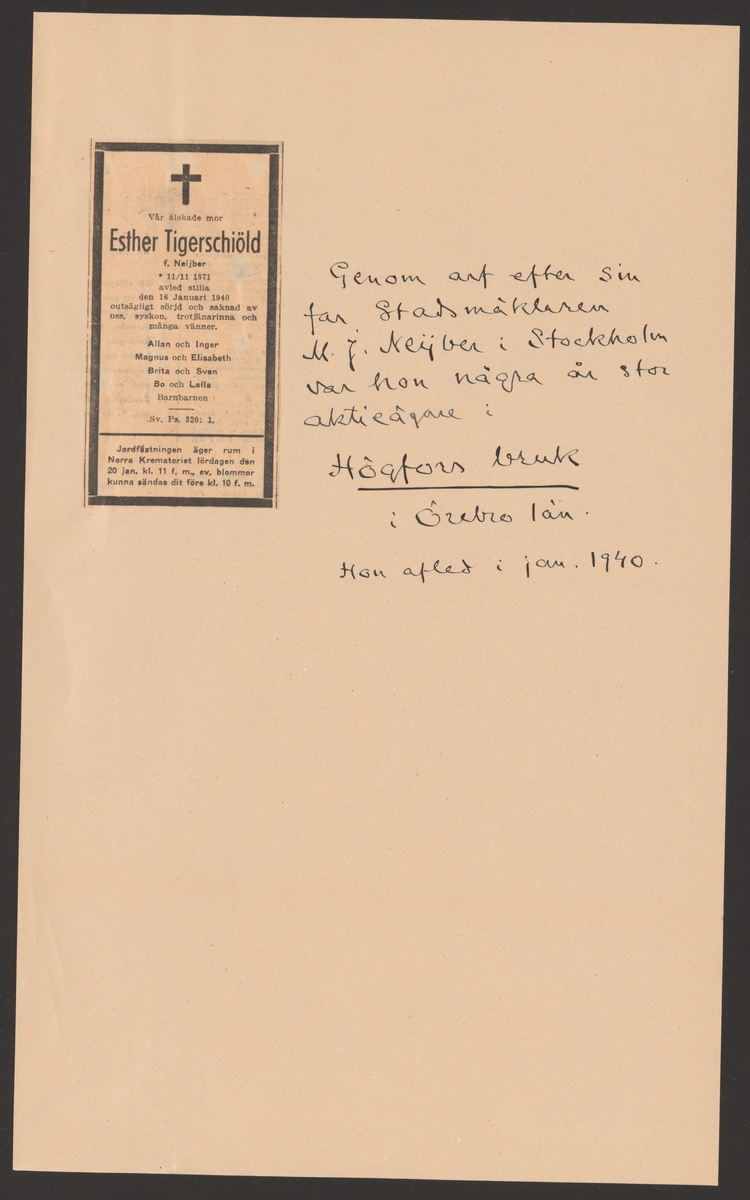 Vår älskade mor
Esther Tigerschiöld
f. Neijber
* 11/11 1871
avled stilla
den 16 Januari 1940
outsägligt sörjd och saknad av
oss, syskon, trotjänarinna och
många vänner.
Allan och Inger
Magnus och Elisabeth
Brita och Sven
Bo och Lalla
Barnbarnen
Sv. Ps. 320: 1.
Jordfästningen äger rum i
Norra Krematoriet lördagen den
20 jan. kl. 11 f. m., ev. blommor
kunna sändas dit före kl. 10 f. m.
Genom arf efter sin
far Stadsmäklaren
M. J. Neijber i Stockholm
var hon några år stor
aktieägare i
Högfors bruk
i Örebro län.
Hon afled i jan. 1940.